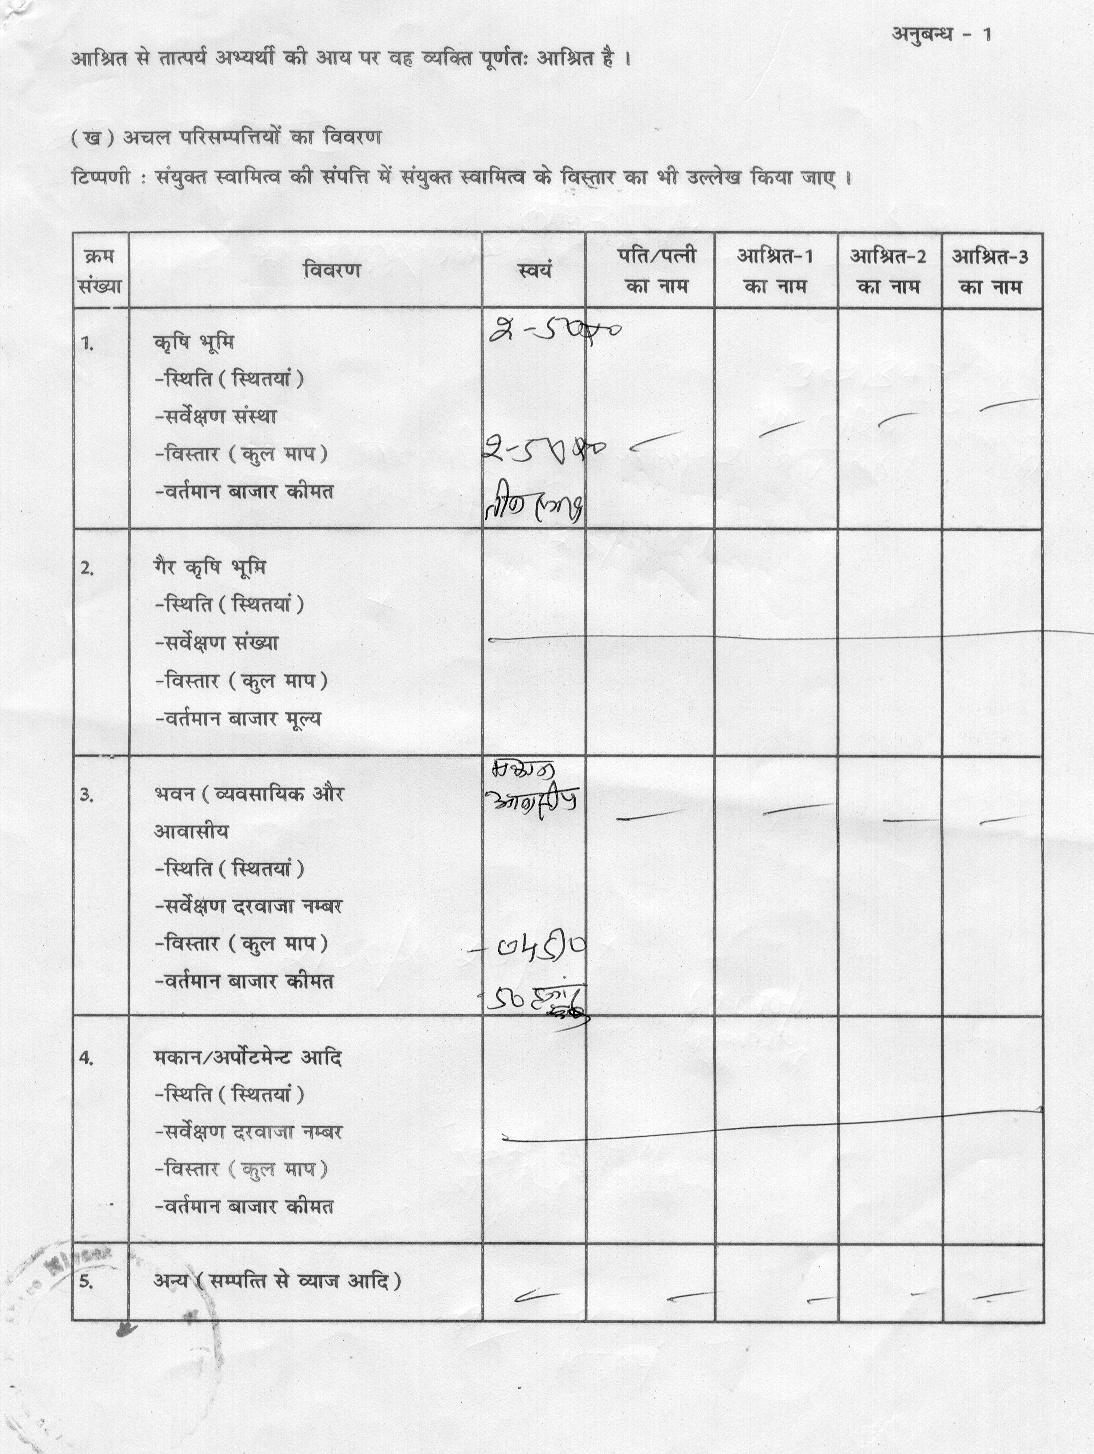 अनुबन्ध - 1
आश्रित से तात्पर्य अभ्यर्थी की आय पर वह व्यक्ति पूर्णतः आश्रित है ।
( ख ) अचल परिसम्पत्तियों का विवरण
टिप्पणी : संयुक्त स्वामित्व की संपत्ति में संयुक्त स्वामित्व के विस्तार का भी उल्लेख किया जाए ।
क्रम संख्या विवरण स्वयं पति/पत्नी का नाम आश्रित-1 का नाम आश्रित-2 का नाम आश्रित-3 का नाम
1. कृषि भूमि
-स्थिति ( स्थितयां )
-सर्वेक्षण संस्था
-विस्तार ( कुल माप )
-वर्तमान बाजार कीमत
2. गैर कृषि भूमि
-स्थिति ( स्थितयां )
-सर्वेक्षण संख्या
-विस्तार ( कुल माप )
-वर्तमान बाजार मूल्य
मकान
3. भवन ( व्यवसायिक और आवासीय
आवासीय
-स्थिति ( स्थितयां )
-सर्वेक्षण दरवाजा नम्बर
-विस्तार ( कुल माप )
-वर्तमान बाजार कीमत 50
4. मकान/अर्पोटमेन्ट आदि
-स्थिति ( स्थितयां )
-सर्वेक्षण दरवाजा नम्बर
-विस्तार ( कुल माप )
-वर्तमान बाजार कीमत
5. अन्य ( सम्पत्ति से व्याज आदि )